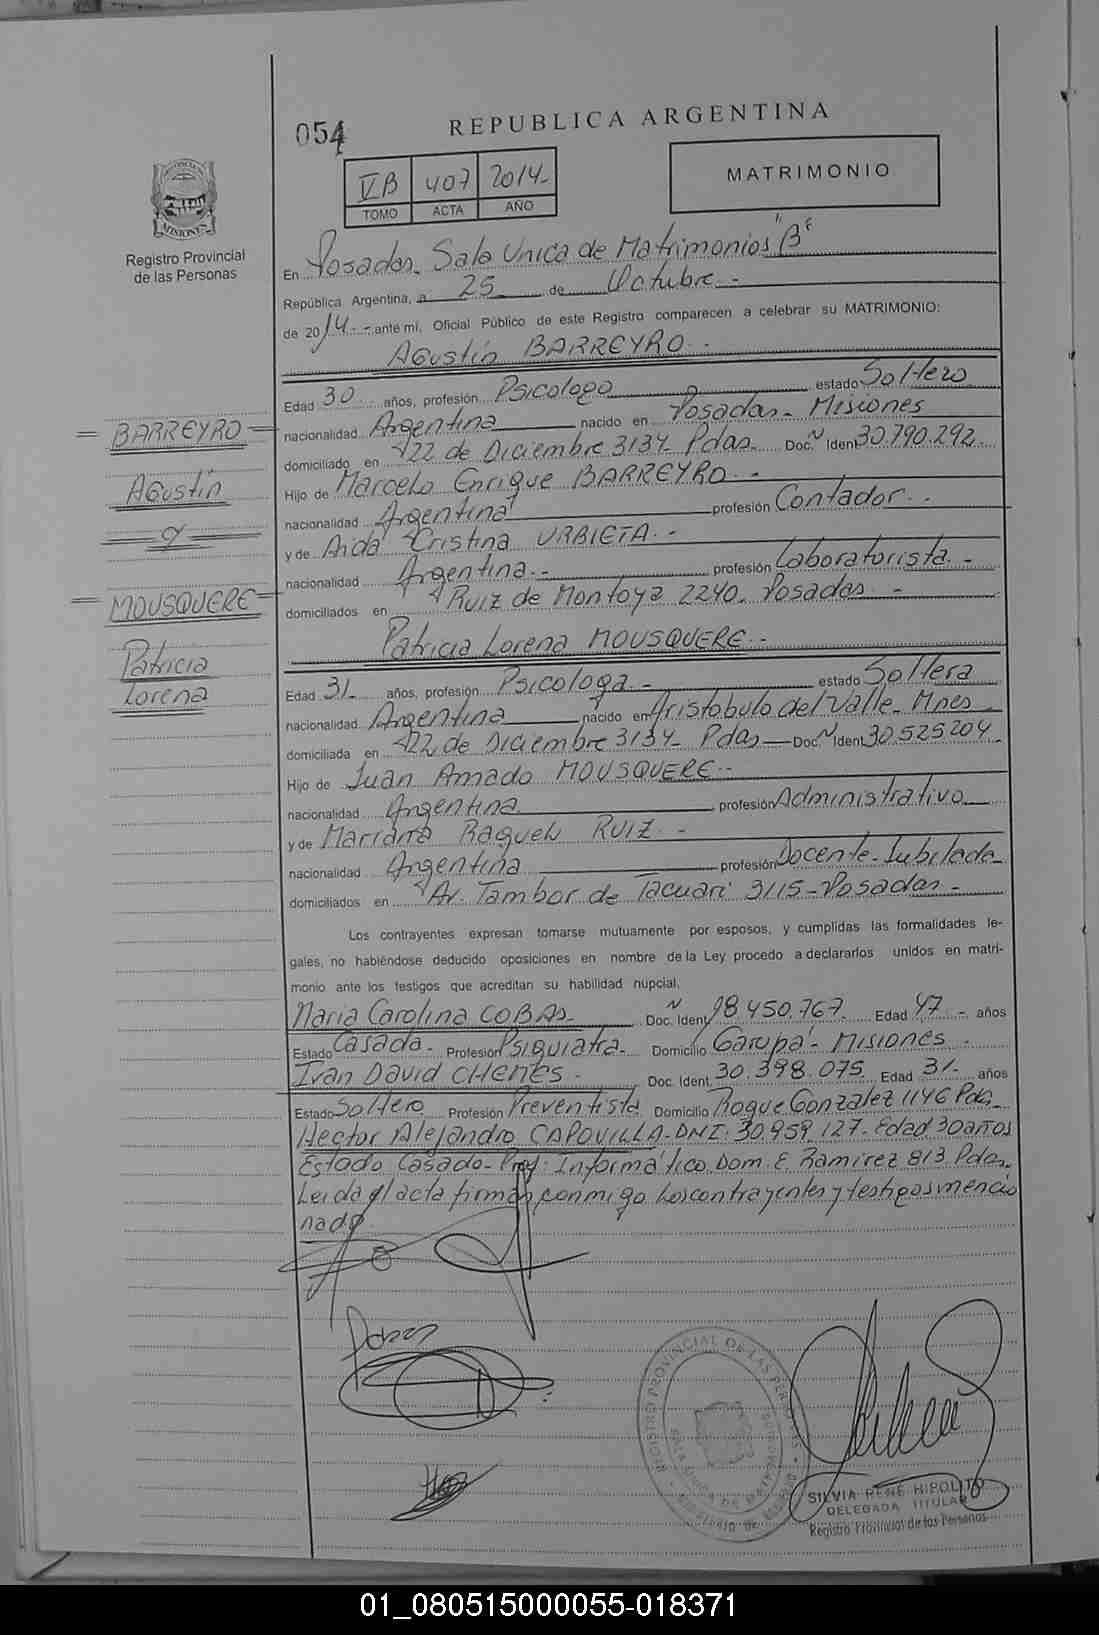 054
REPUBLICA ARGENTINA
VB 407 2014-
TOMO ACTA AÑO
MATRIMONIO
PROVINCIA
MISIONES
Registro Provincial
de las Personas
En Posadas. Sala Unica de Matrimonios "B"
República Argentina, a 25 de Octubre. -
de 2014.- ante mí, Oficial Público de este Registro comparecen a celebrar su MATRIMONIO:
Agustín BARREYRO. -
Edad 30 años, profesión Psicologo estado Soltero
nacionalidad Argentina nacido en Posadas- Misiones
domiciliado en 122 de Diciembre 3134- Pdas. Doc. Ident 30.790.292.
Hijo de Marcelo Enrique BARREYRO. -
nacionalidad Argentina profesión Contador. -
y de Aida Cristina URBIETA. -
nacionalidad Argentina. - profesión Laboratorista -
domiciliados en Ruiz de Montoya 2240. Posadas. -
Patricia Lorena MOUSQUERE. -
Edad 31. años, profesión Psicologa. - estado Soltera
nacionalidad Argentina nacido en Aristobulo del Valle. Mnes
domiciliada en 122 de Diciembre 3134- Pdas Doc. Ident 30.525.204.
Hijo de Juan Amado MOUSQUERE. -
nacionalidad Argentina profesión Administrativo
y de Mariana Raquel RUIZ. -
nacionalidad Argentina profesión Docente-Jubilada
domiciliados en Av. Tambor de Tacuari 3115-Posadas -
= BARREYRO =
Agustín
y
= MOUSQUERE =
Patricia
Lorena
Los contrayentes expresan tomarse mutuamente por esposos, y cumplidas las formalidades le-
gales, no habiéndose deducido oposiciones en nombre de la Ley procedo a declararlos unidos en matri-
monio ante los testigos que acreditan su habilidad nupcial.
Maria Carolina COBAS- Doc. Ident. 18.450.767. Edad 47 - años
Estado Casada- Profesión Psiquiatra- Domicilio Garupá- Misiones -
Ivan David CHENES- Doc. Ident. 30.398.075. Edad 31. años
Estado Soltero Profesión Preventista Domicilio Roque Gonzalez 1146 Pdas
Hector Alejandro CAPOVILLA-DNI: 30.959.127- Edad 30 años
Estado Casado- Prof: Informático. Dom. E. Ramirez 813 Pdas.
Leida el acta firman conmigo los contrayentes y testigos mencio
nado
REGISTRO PROVINCIAL DE LAS PERSONAS
SILVIA RENE HIPOLITO
DELEGADA TITULAR
Registro Provincial de las Personas
01_080515000055-018371